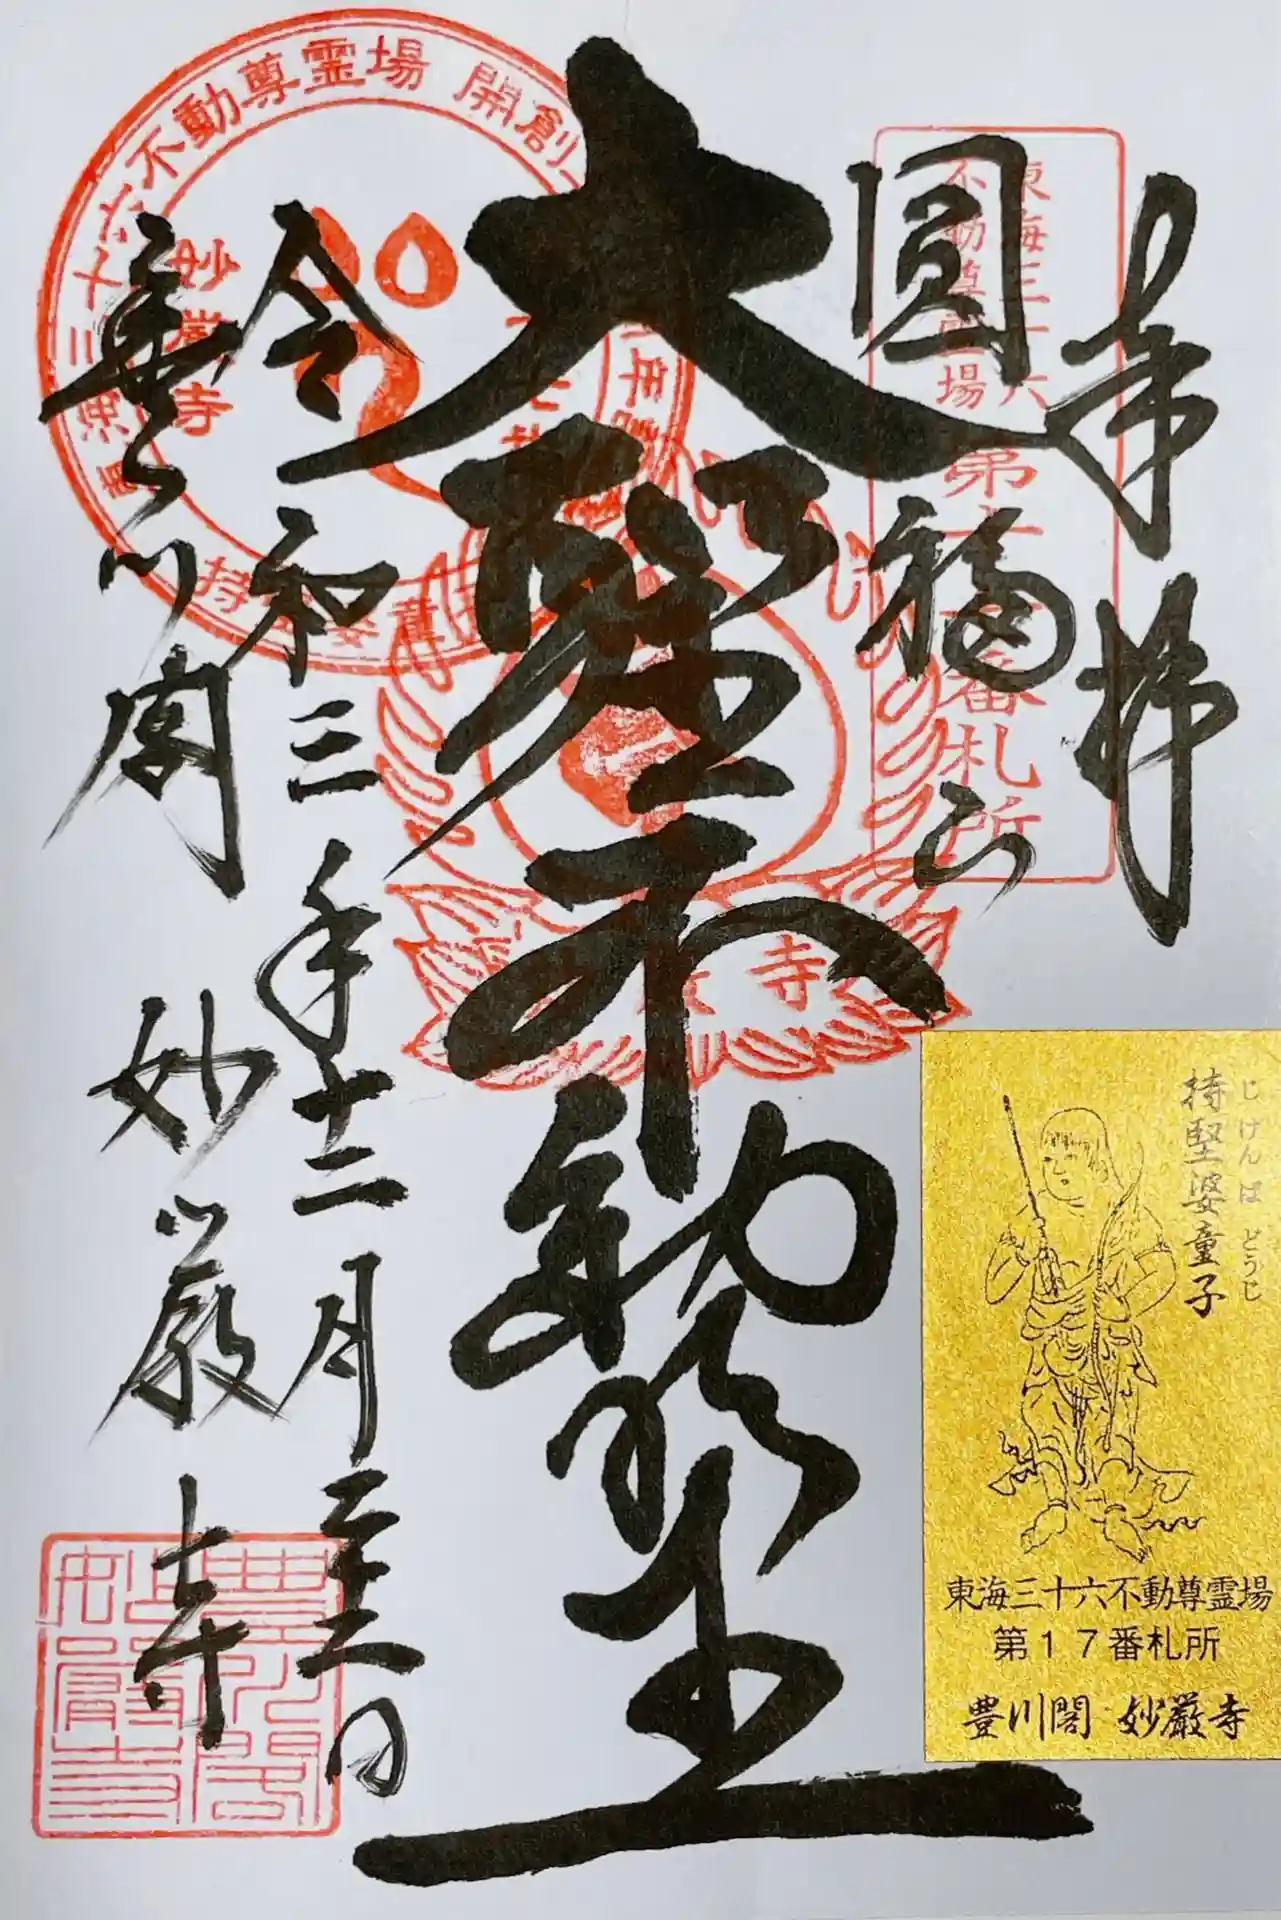 奉拝
東海三十六
不動尊霊場
第十七番札所
圓福山
大聖不動明王
令和三年十二月
豊川閣 妙厳寺
東海三十六不動尊霊場 開創
妙厳寺
寺
豊川閣
妙嚴寺
じけんば どうじ
持堅婆童子
東海三十六不動尊霊場
第17番札所
豊川閣 妙厳寺